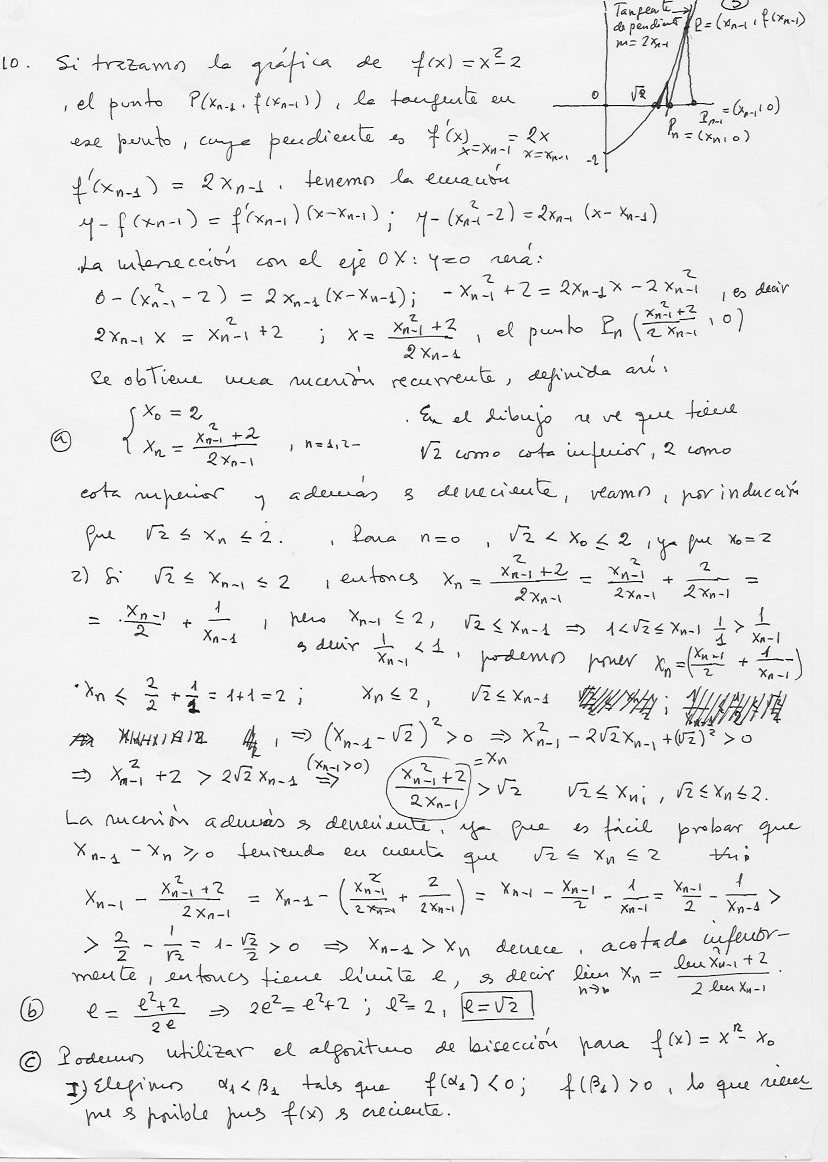 Tangente
de pendiente
m = 2xₙ₋₁
P = (xₙ₋₁, f(xₙ₋₁))
0
√2
Pₙ₋₁ = (xₙ₋₁, 0)
Pₙ = (xₙ, 0)
-2
10. Si trazamos la gráfica de f(x) = x² - 2
, el punto P(xₙ₋₁, f(xₙ₋₁)), la tangente en
ese punto, cuya pendiente es f'(x)ₓ₌ₓₙ₋₁ = 2xₓ₌ₓₙ₋₁
f'(xₙ₋₁) = 2xₙ₋₁. tenemos la ecuación
y - f(xₙ₋₁) = f'(xₙ₋₁)(x - xₙ₋₁); y - (xₙ₋₁² - 2) = 2xₙ₋₁(x - xₙ₋₁)
La intersección con el eje OX: y=0 será:
0 - (xₙ₋₁² - 2) = 2xₙ₋₁(x - xₙ₋₁); -xₙ₋₁² + 2 = 2xₙ₋₁x - 2xₙ₋₁², es decir
2xₙ₋₁x = xₙ₋₁² + 2 ; x = (xₙ₋₁² + 2)/(2xₙ₋₁), el punto Pₙ((xₙ₋₁² + 2)/(2xₙ₋₁), 0)
Se obtiene una sucesión recurrente, definida así:
ⓐ { x₀ = 2 . En el dibujo se ve que tiene
xₙ = (xₙ₋₁² + 2)/(2xₙ₋₁) , n=1,2- √2 como cota inferior, 2 como
cota superior y además es decreciente, veamos, por inducción
que √2 ≤ xₙ ≤ 2. , Para n=0, √2 < x₀ ≤ 2, ya que x₀=2
2) Si √2 ≤ xₙ₋₁ ≤ 2, entonces xₙ = (xₙ₋₁² + 2)/(2xₙ₋₁) = xₙ₋₁²/(2xₙ₋₁) + 2/(2xₙ₋₁) =
= xₙ₋₁/2 + 1/xₙ₋₁, pero xₙ₋₁ ≤ 2, √2 ≤ xₙ₋₁ ⇒ 1 < √2 ≤ xₙ₋₁ 1/1 > 1/xₙ₋₁
es decir 1/xₙ₋₁ < 1, podemos poner xₙ = (xₙ₋₁/2 + 1/xₙ₋₁)
· xₙ ≤ 2/2 + 1/1 = 1+1 = 2; xₙ ≤ 2, √2 ≤ xₙ₋₁ ;
, ⇒ (xₙ₋₁ - √2)² > 0 ⇒ xₙ₋₁² - 2√2xₙ₋₁ + (√2)² > 0
⇒ xₙ₋₁² + 2 > 2√2xₙ₋₁ (xₙ₋₁>0) ⇒ (xₙ₋₁² + 2)/(2xₙ₋₁) = xₙ > √2 √2 ≤ xₙ; , √2 ≤ xₙ ≤ 2.
La sucesión además es decreciente, ya que es fácil probar que
xₙ₋₁ - xₙ ≥ 0 teniendo en cuenta que √2 ≤ xₙ ≤ 2
xₙ₋₁ - (xₙ₋₁² + 2)/(2xₙ₋₁) = xₙ₋₁ - (xₙ₋₁²/(2xₙ₋₁) + 2/(2xₙ₋₁)) = xₙ₋₁ - xₙ₋₁/2 - 1/xₙ₋₁ = xₙ₋₁/2 - 1/xₙ₋₁ >
> 2/2 - 1/√2 = 1 - √2/2 > 0 ⇒ xₙ₋₁ > xₙ decrece, acotada inferior-
mente, entonces tiene límite ℓ, es decir lim n→∞ xₙ = (lim xₙ₋₁² + 2)/(2 lim xₙ₋₁).
ⓑ ℓ = (ℓ²+2)/(2ℓ) ⇒ 2ℓ² = ℓ²+2 ; ℓ² = 2, ℓ = √2
ⓒ Podemos utilizar el algoritmo de bisección para f(x) = xⁿ - x₀
I) Elegimos α₁ < β₁ tales que f(α₁) < 0; f(β₁) > 0, lo que
que es posible pues f(x) es creciente.